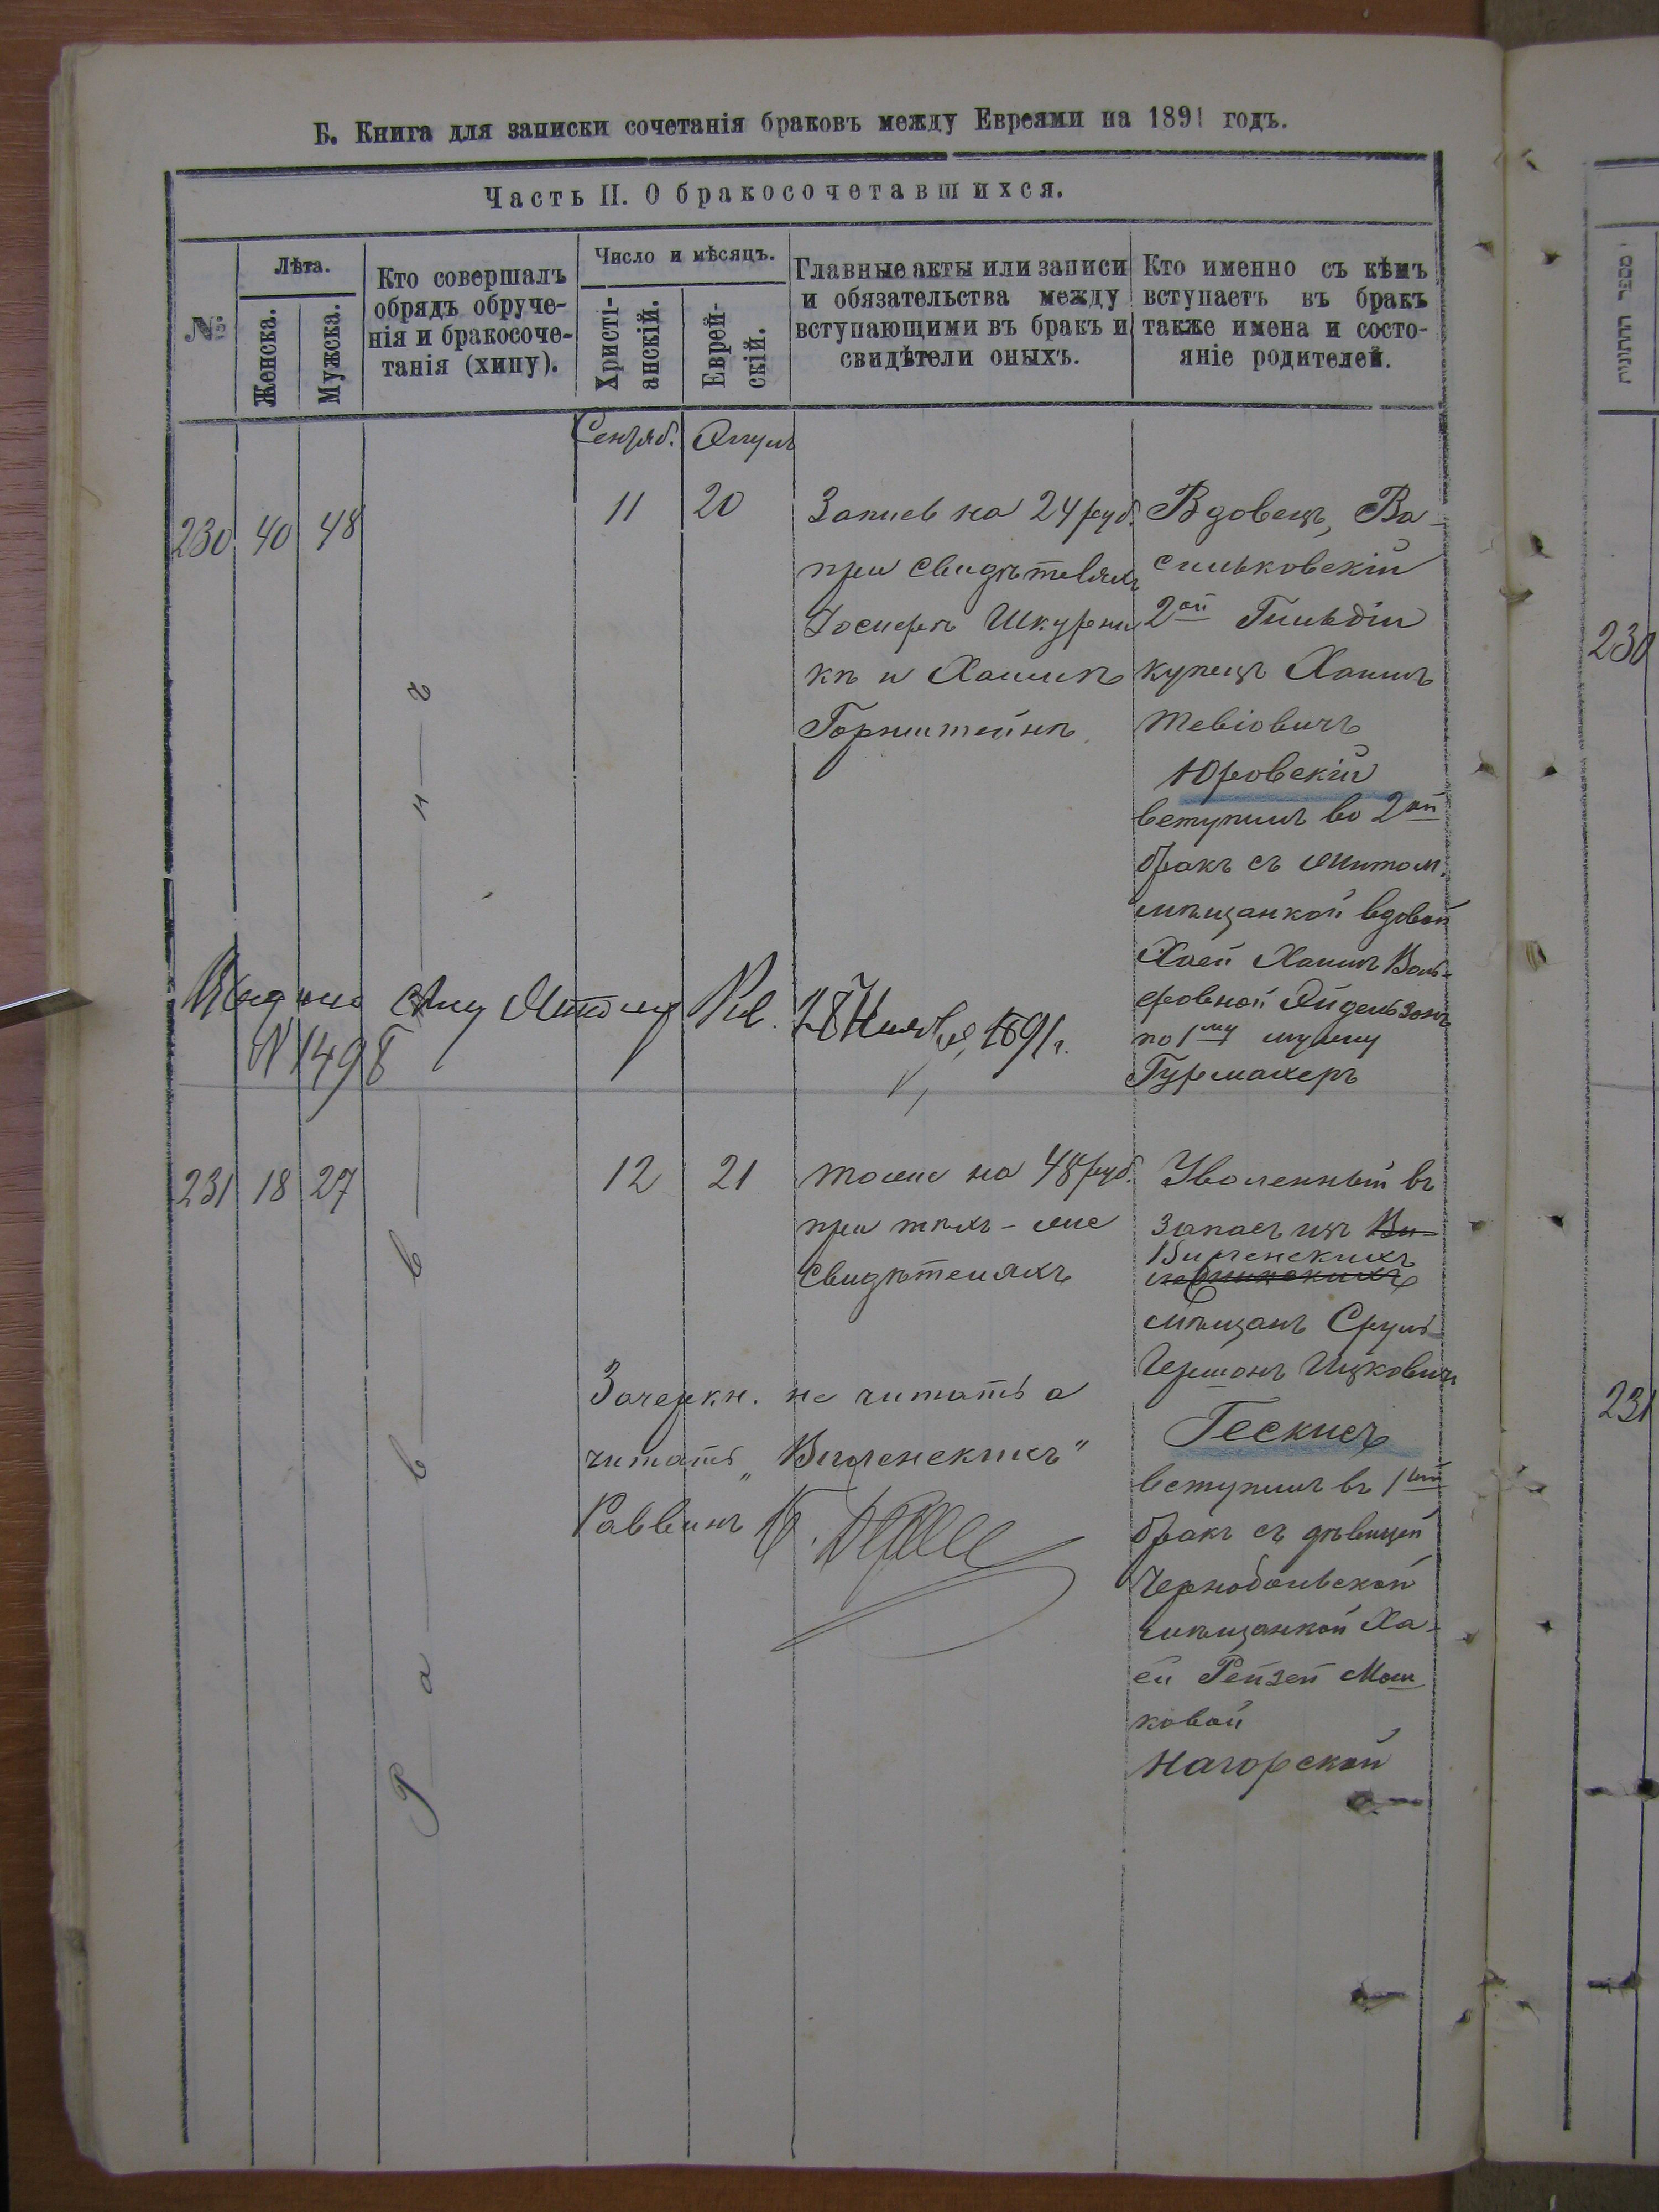 Б. Книга для записки сочетанія браковъ между Евреями на 1891 годъ.
Часть II. О бракосочетавшихся.
№
Лѣта.
Женска.
Мужска.
Кто совершалъ
обрядъ обруче-
нія и бракосоче-
танія (хипу).
Число и мѣсяцъ.
Христі-
анскій.
Еврей-
скій.
Главные акты или записи
и обязательства между
вступающими въ бракъ и
свидѣтели оныхъ.
Кто именно съ кѣмъ
вступаетъ въ бракъ
также имена и состо-
яніе родителей.
Сентяб.
230 40 48
11 20
Запись на 24 руб.
при свидѣтеляхъ
Іосифѣ Шкурни
кѣ и Хаимѣ
Горнштейнѣ
Вдовецъ, Ва-
сильковскій
2ой Гильдіи
купецъ Хаимъ
Тевіовичъ
Юровскій
вступилъ во 2ой
бракъ съ житом.
мѣщанкой вдовой
Хаей Хаимъ Воль-
фовной Айдельзонъ
по 1му мужу
Гурмахеръ
Раввинъ
1891 г.
N 1498
231 18 27
12 21
тоже на 48 руб.
при тѣхъ-же
свидѣтеляхъ
Зачеркн. не читать а
читать „Виленскихъ“
Раввинъ
Уволенный въ
запасъ изъ Ви-
Виленскихъ
мѣщанъ Сруль
Гершонъ Ицковичъ
Гескисъ
вступилъ въ 1ый
бракъ съ дѣвицей
Чернобыльской
мѣщанкой Ха-
ей Рейзей Мош
ковой
Нагорской
מספר החתונות
230
231